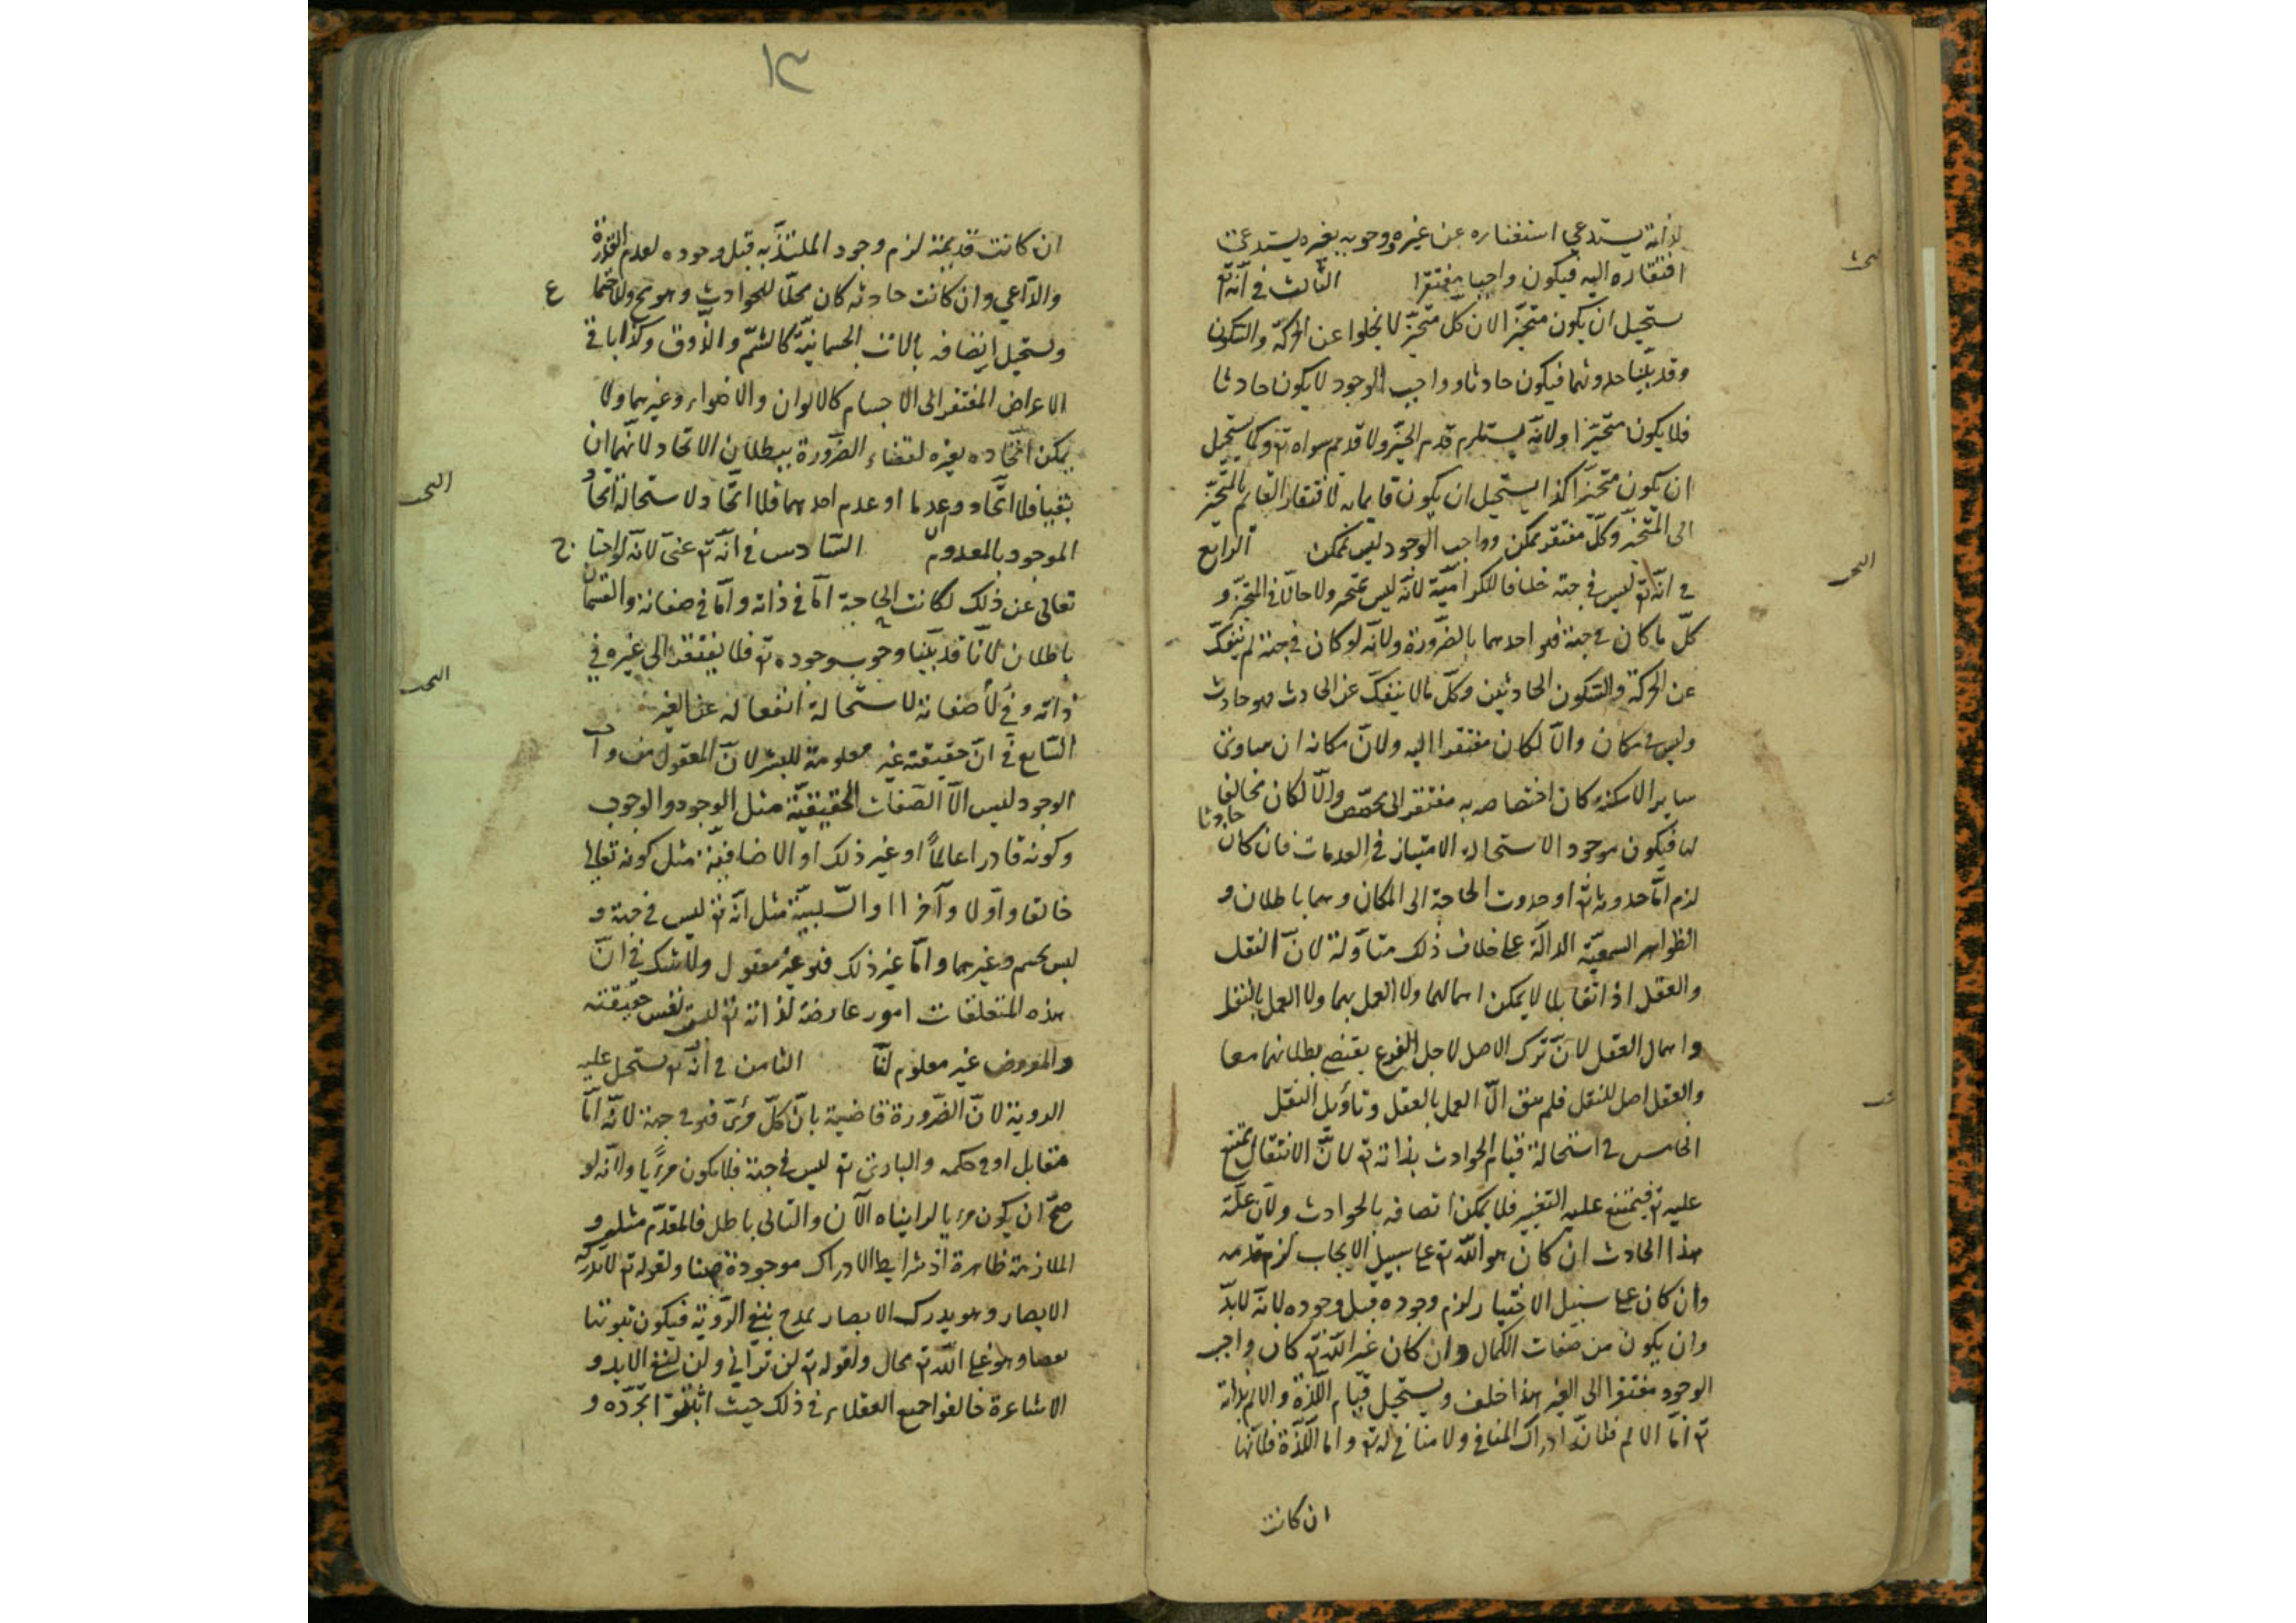 لذاته يستدعي استغناءه عن غيره ووجوبه بغيره يستدعي
افتقاره اليه فيكون واجبا مفتقرا الثالث في انّه تع
يستحيل ان يكون متحيّزا لان كلّ متحيّز لا يخلوا عن الحركة والسّكون
وقد بيّنا حدوثهما فيكون حادثا وواجب الوجود لا يكون حادثا
فلا يكون متحيّزا ولانّه يستلزم قدم الحيّز ولا قديم سواه تع وكما يستحيل
ان يكون متحيّزا كذا يستحيل ان يكون قايما به لافتقار القايم بالمتحيّز
الى المتحيّز وكلّ مفتقر ممكن وواجب الوجود ليس بممكن الرابع
في انّه تع ليس في جهة خلافا للكراميّة لانّه ليس بمتحيز ولا حالّا في المتحيّز و
كلّ ما كان في جهة فهو احدهما بالضّرورة ولانّه لو كان في جهة لم ينفكّ
عن الحركة والسّكون الحادثين وكلّ ما لا ينفكّ عن الحادث فهو حادث
وليس في مكان والّا لكان مفتقرا اليه ولانّ مكانه ان ساوى
ساير الامكنة كان اختصاصه به مفتقرا الى مخصّص والّا لكان مخالفا
لها فيكون موجودا لاستحالة الامتياز في العدمات فان كان حادثا
لزم امّا حدوثه تع او حدوث الحاجة الى المكان وهما باطلان و
الظواهر السمعيّة الدالّة على خلاف ذلك متأوّلة لانّ النقل
والعقل اذا تقابلا لا يمكن اهمالهما ولا العمل بهما ولا العمل بالنقل
واهمال العقل لانّ ترك الاصل لاجل الفرع يقتضي بطلانهما معا
والعقل اصل للنقل فلم يبق الّا العمل بالعقل وتاؤيل النقل
الخامس في استحالة قيام الحوادث بذاته تع لانّ الانتقال ممتنع
عليه تع فيمتنع عليه التغيير فلا يمكن اتصافه بالحوادث ولانّ علّة
هذا الحادث ان كان هو اللّه تع على سبيل الايجاب لزم قدمه
وان كان على سبيل الاختيار لزم وجوده قبل وجوده لانّه لابدّ
وان يكون من صفات الكمال وان كان غير اللّه تع كان واجب
الوجود مفتقرا الى الغير هذا خلف ويستحيل قيام اللّذة والالم بذاته
تع امّا الالم فلانّه ادراك المنافي ولا منافي له تع واما اللّذة فلانّها
ان كانت
١٣
ان كانت قديمة لزم وجود الملتذّ به قبل وجوده لعدم القدرة
والدّاعي وان كانت حادثه كان محلّا للحوادث وهو مح ولاجتما ع
ويستحيل اتصافه بالالات الجسمانيّة كالشمّ والذّوق وكذا باقي
الاعراض المفتقر الى الاجسام كالالوان والاضواء وغيرهما ولا
يمكن اتّحاده بغيره لقضاء الضّرورة ببطلان الاتحاد لانّهما ان
بقيا فلا اتّحاد وان عدما او عدم احدهما فلا اتّحاد لاستحالة اتّحاد
الموجود بالمعدوم السّادس في انّه تع غنى لانّه لو احتا ج
تعالى عن ذلك لكانت الحاجة امّا في ذاته وامّا في صفاته والقسمان
باطلان لانّا قد بيّنا وجوب وجوده تع فلا يفتقر الى غيره في
ذاته ولا في صفاته لاستحالة انفعاله عن الغير
السّابع في انّ حقيقته غير معلومة للبشر لانّ المعقول من واجب
الوجود ليس الّا الصّفات الحقيقيّة مثل الوجود والوجوب
وكونه قادرا عالماً او غير ذلك او الاضافيّة مثل كونه تعالى
خالقا واوّلا وآخرا او السّلبيّة مثل انّه تع ليس في جهة و
ليس بجسم وغيرهما وامّا غير ذلك فهو غير معقول ولا شك في انّ
هذه المتعلقات امور عارضة لذاته تع ليس نفس حقيقته
والمعروض غير معلوم لنا الثامن في انّه تع يستحيل عليه
الروية لانّ الضّرورة قاضية بانّ كلّ مرئىّ فهو في جهة لانّه امّا
مقابل او في حكمه والبارئ تع ليس في جهة فلا يكون مرئيا ولانّه لو
صحّ ان يكون مرئيا لرايناه الآن والتالى باطل فالمقدّم مثله و
الملازمة ظاهرة اذ شرايط الادراك موجودة هنا ولقوله تع لا تدركه
الابصار وهو يدرك الابصار تمدح بنفى الرّوية فيكون ثبوتها
نقصا وهو على اللّه تع محال ولقوله تع لن ترانى ولن لنفى الابد و
الاشاعرة خالفوا جميع العقلاء في ذلك حيث اثبتوا تجرّده و